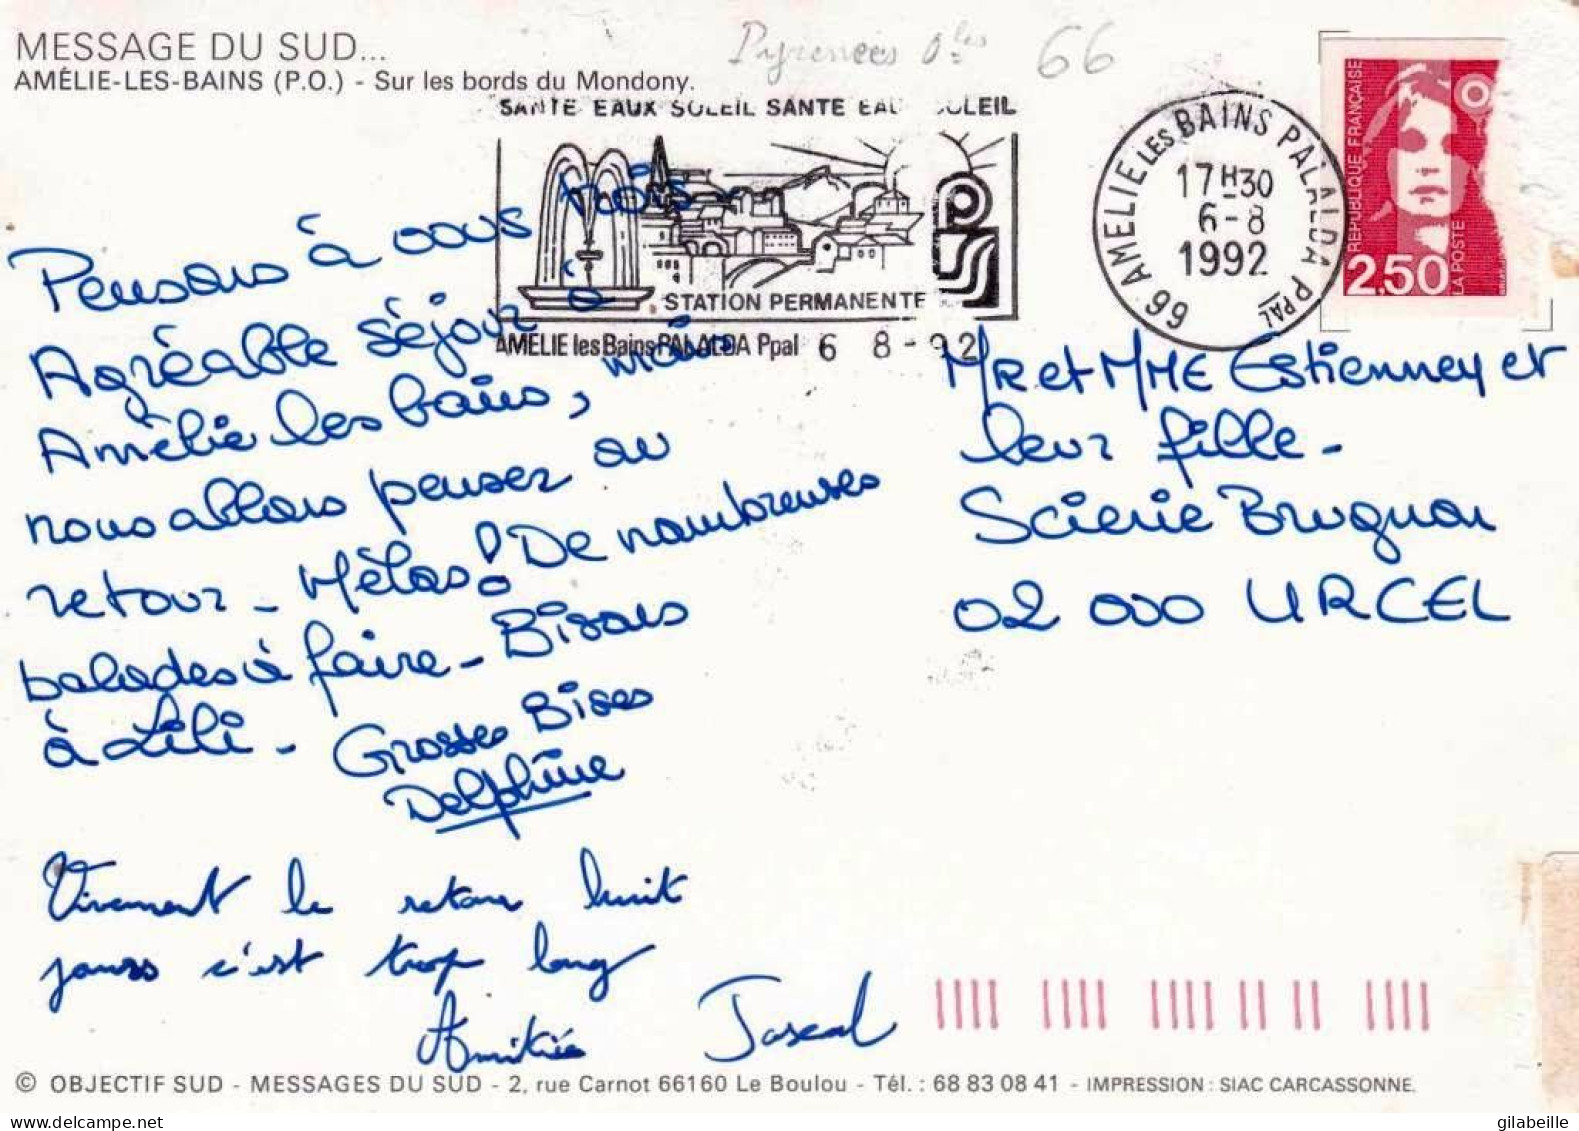 MESSAGE DU SUD...
AMÉLIE-LES-BAINS (P.O.) - Sur les bords du Mondony.
Pyrenees Oles 66
SANTE EAUX SOLEIL SANTE EAU SOLEIL
STATION PERMANENTE
AMELIE les Bains PALALDA Ppal 6 8-92
66 AMELIE LES BAINS PALALDA PPAL
17H30
6-8
1992
REPUBLIQUE FRANÇAISE
2,50
LA POSTE
Pensons à vous mois -
Agréable séjour à
Amélie les bains, mais
nous allons penser au
retour - Hélas! De nombreuses
balades à faire - Bisous
à Lili - Grosses Bises
Delphine
Vivement le retour huit
jours c'est trop long
Amitiés Pascal
Mr et MME Estienney et
leur fille -
Scierie Brugnon
02 000 URCEL
© OBJECTIF SUD - MESSAGES DU SUD - 2, rue Carnot 66160 Le Boulou - Tél. : 68 83 08 41 - IMPRESSION : SIAC CARCASSONNE.
gilabeille